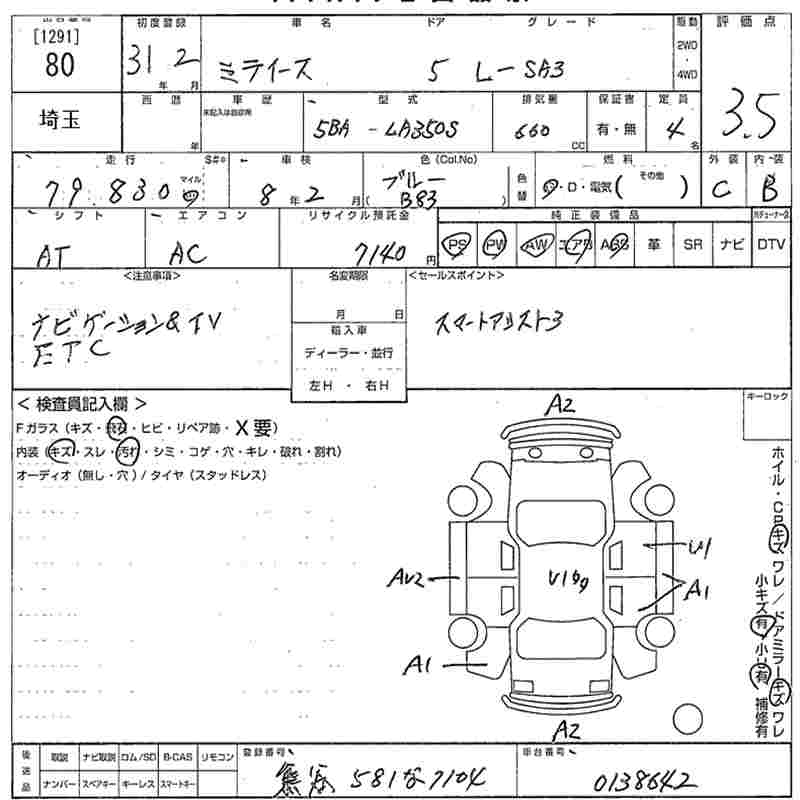 [1291]
80
初度登録
31年 2月
車名
ミライース
ドア
5
グレード
L-SA3
駆動
2WD
・
4WD
評価点
3.5
埼玉
西暦
年
車歴
未記入は自家用
型式
5BA-LA350S
排気量
660cc
保証書
有・無
定員
4名
走行
79,830
マイル
S#*
車検
8年2月
色(Col.No)
ブルー
(B83)
色替
燃料
・D・電気( その他 )
外装
C
内装
B
シフト
AT
エアコン
AC
リサイクル預託金
7140円
純正装備品
PS PW AW エアB ABS 革 SR ナビ
DTV
<注意事項>
ナビゲーション&TV
ETC
名変期限
月 日
輸入車
ディーラー・並行
左H・右H
<セールスポイント>
スマートアシスト3
<検査員記入欄>
Fガラス(キズ・飛石・ヒビ・リペア跡・X要)
内装(キズ・スレ・汚れ・シミ・コゲ・穴・キレ・破れ・割れ)
オーディオ(無し・穴)/タイヤ(スタッドレス)
キーロック
A2
U1
AU2
A1
A1
A2
ホイル・CPキズワレ/ドアミラーキズワレ
小キズ有 小凹有 補修有
後送品
取説 ナビ取説 ロム/SD B-CAS リモコン
ナンバー スペアキー キーレス スマートキー
登録番号
熊谷 581な7104
車台番号
0138642